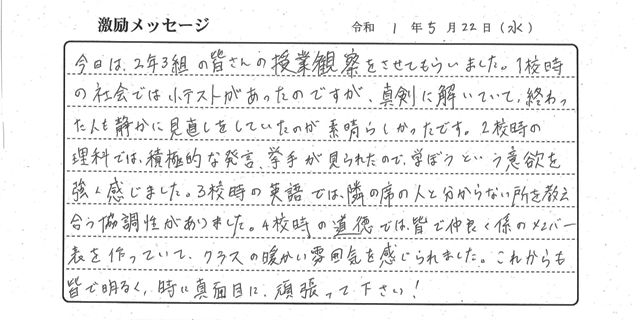 激励メッセージ 令和 1 年 5 月 22 日 (水)
今日は、2年3組の皆さんの授業観察をさせてもらいました。1校時
の社会では小テストがあったのですが、真剣に解いていて、終わっ
た人も静かに見直しをしていたのが素晴らしかったです。2校時の
理科では、積極的な発言、挙手が見られたので、学ぼうという意欲を
強く感じました。3校時の英語では、隣の席の人と分からない所を教え
合う協調性がありました。4校時の道徳では、皆で仲良く係のメンバー
表を作っていて、クラスの暖かい雰囲気を感じられました。これからも
皆で明るく、時に真面目に、頑張って下さい!